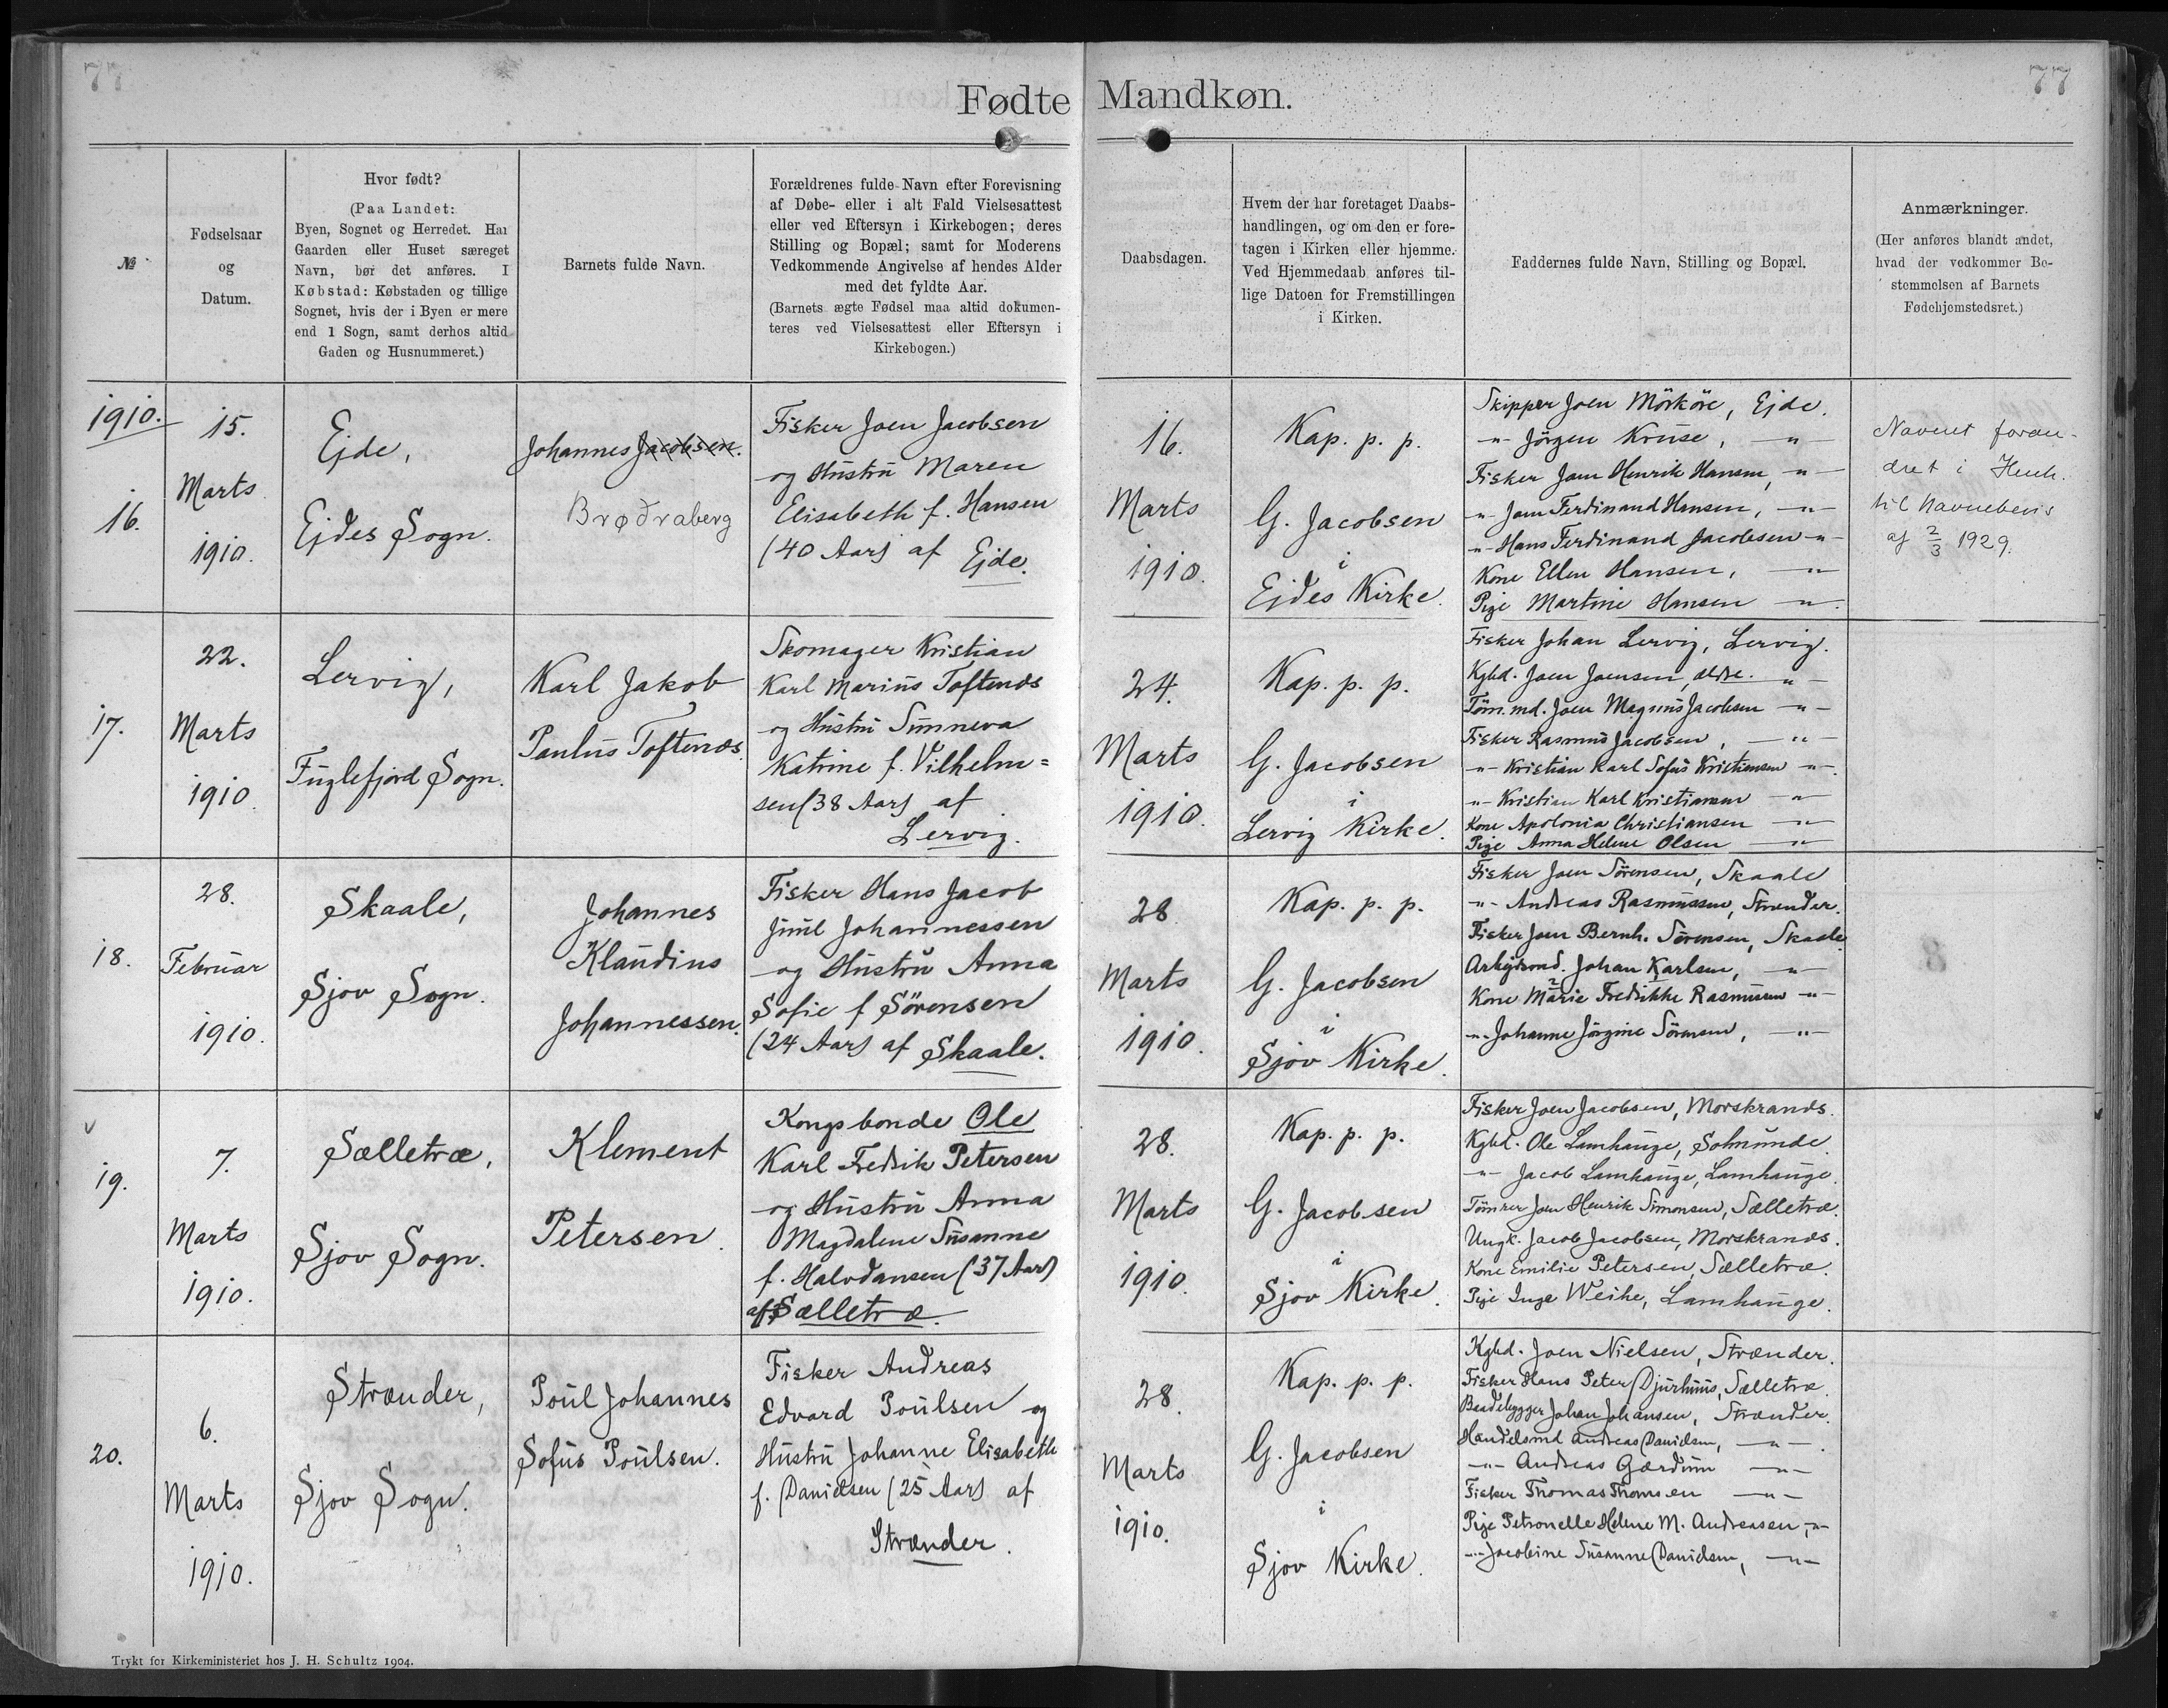 77
Fødte
Mandkøn.
77
№
Fødselsaar
og
Datum.
Hvor født?
(Paa Landet:
Byen, Sognet og Herredet. Har
Gaarden eller Huset særeget
Navn, bør det anføres. I
Købstad: Købstaden og tillige
Sognet, hvis der i Byen er mere
end 1 Sogn, samt derhos altid
Gaden og Husnummeret.)
Barnets fulde Navn.
Forældrenes fulde Navn efter Forevisning
af Døbe- eller i alt Fald Vielsesattest
eller ved Eftersyn i Kirkebogen; deres
Stilling og Bopæl; samt for Moderens
Vedkommende Angivelse af hendes Alder
med det fyldte Aar.
(Barnets ægte Fødsel maa altid dokumen-
teres ved Vielsesattest eller Eftersyn i
Kirkebogen.)
Daabsdagen.
Hvem der har foretaget Daabs-
handlingen, og om den er fore-
tagen i Kirken eller hjemme.
Ved Hjemmedaab anføres til-
lige Datoen for Fremstillingen
i Kirken.
Faddernes fulde Navn, Stilling og Bopæl.
Anmærkninger.
(Her anføres blandt andet,
hvad der vedkommer Be-
stemmelsen af Barnets
Fødehjemstedsret.)
1910.
16.
15.
Marts
1910.
Ejde,
Ejdes Sogn.
Johannes Jacobsen.
Brøðraberg
Fisker Joen Jacobsen
og Hustru Maren
Elisabeth f. Hansen
(40 Aar) af Ejde.
16.
Marts
1910.
Kap. p. p.
G. Jacobsen
i
Ejdes Kirke.
Skipper Joen Mörköre, Ejde.
-"- Jörgen Kruse, -"-
Fisker Joen Henrik Hansen, -"-
-"- Joen Ferdinand Hansen, -"-
-"- Hans Ferdinand Jacobsen -"-
Kone Ellen Hansen, -"-
Pige Martine Hansen -"-
Navnet foran-
dret i Henh.
til Navnebevis
af 2/3 1929.
17.
22.
Marts
1910.
Lervig,
Fuglefjord Sogn.
Karl Jakob
Paulus Toftenæs
Skomager Kristian
Karl Marius Toftenæs
og Hustru Sunneva
Katrine f. Vilhelm=
sen (38 Aar) af
Lervig.
24.
Marts
1910.
Kap. p. p.
G. Jacobsen
i
Lervig Kirke.
Fisker Johan Lervig, Lervig.
Kgbd. Joen Joensen, ældre. -"-
Töm.md. Joen Magnus Jacobsen -"-
Fisker Rasmus Jacobsen, -"-
-"- Kristian Karl Sofus Kristiansen -"-
-"- Kristian Karl Kristiansen -"-
Kone Apolonia Christiansen -"-
Pige Anna Helene Olsen -"-
18.
28.
Februar
1910.
Skaale,
Sjov Sogn.
Johannes
Klaudius
Johannessen.
Fisker Hans Jacob
Juul Johannessen
og Hustru Anna
Sofie f Sörensen
(24 Aar) af Skaale.
28
Marts
1910.
Kap. p. p.
G. Jacobsen
i
Sjov Kirke.
Fisker Joen Sörensen, Skaale
-"- Andreas Rasmussen, Strænder.
Fisker Joen Bernh. Sörensen, Skaale
Arbejdsmd. Johan Karlsen, -"-
Kone Marie Fredrikke Rasmussen -"-
-"- Johanne Jörgine Sörensen, -"-
19.
7.
Marts
1910.
Sælletræ,
Sjov Sogn.
Klement
Petersen.
Kongsbonde Ole
Karl Fredrik Petersen
og Hustru Anna
Magdalene Susanne
f. Halvdansen (37 Aar)
af Sælletræ.
28.
Marts
1910.
Kap. p. p.
G. Jacobsen
i
Sjov Kirke.
Fisker Joen Jacobsen, Morskranes.
Kgbd. Ole Lamhauge, Solmunde.
-"- Jacob Lamhauge, Lamhauge.
Tömrer Joen Henrik Simonsen, Sælletræ.
Ungk. Jacob Jacobsen, Morskranes.
Kone Emilie Petersen, Sælletræ.
Pige Inga Weihe, Lamhauge.
20.
6.
Marts
1910.
Strænder,
Sjov Sogn.
Poul Johannes
Sofus Poulsen.
Fisker Andreas
Edvard Poulsen og
Hustru Johanne Elisabeth
f. Danielsen (25 Aar) af
Strænder.
28.
Marts
1910.
Kap. p. p.
G. Jacobsen
i
Sjov Kirke.
Kgbd. Joen Nielsen, Strænder.
Fisker Hans Peter Djurhuus, Sælletræ.
Baadebygger Johan Johansen, Strænder.
Handelsmd Andreas Danielsen, -"-
-"- Andreas Gærdum -"-
Fisker Thomas Thomsen -"-
Pige Petronelle Helene M. Andreasen, -"-
-"- Jacobine Susanne Danielsen, -"-
Trykt for Kirkeministeriet hos J. H. Schultz 1904.